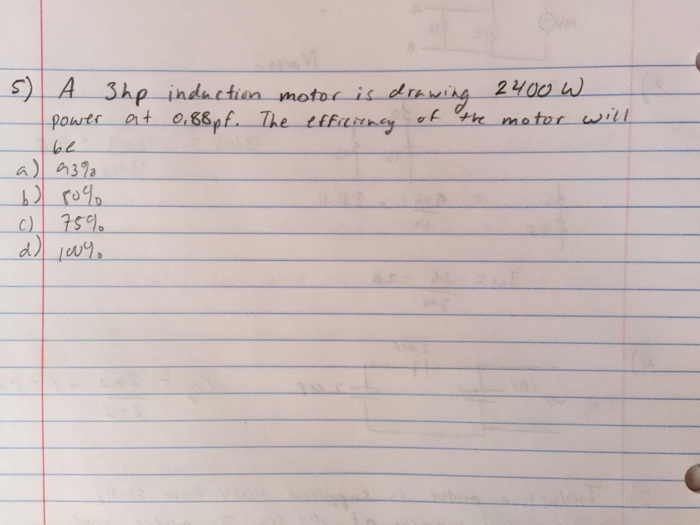 5) A 3hp induction motor is drawing 2400 W
power at 0.88pf. The efficiency of the motor will
be
a) 93%
b) 80%
c) 75%
d) 100%